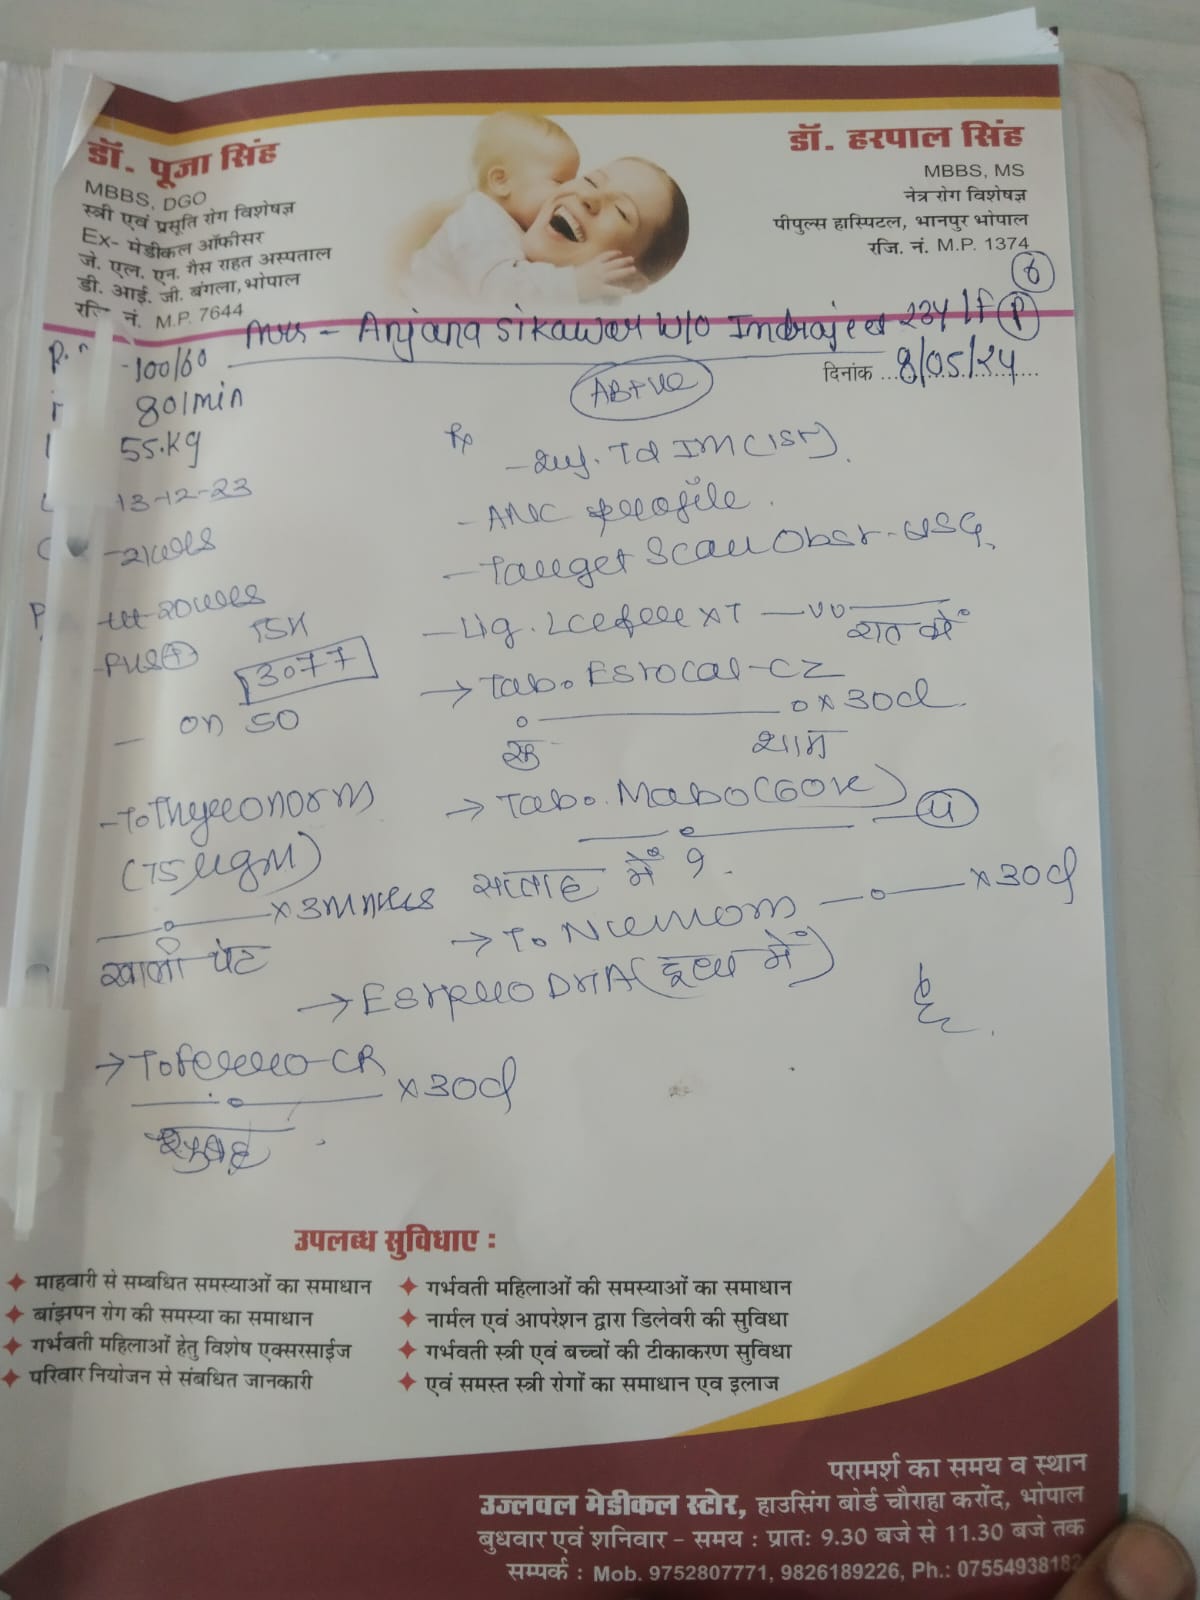 डॉ. पूजा सिंह
MBBS, DGO
स्त्री एवं प्रसूति रोग विशेषज्ञ
Ex- मेडीकल ऑफीसर
जे. एल. एन. गैस राहत अस्पताल
डी. आई. जी. बंगला, भोपाल
नं. M.P. 7644
डॉ. हरपाल सिंह
MBBS, MS
नेत्र रोग विशेषज्ञ
पीपुल्स हास्पिटल, भानपुर भोपाल
रजि. नं. M.P. 1374
Mrs - Anjana Sikawar W/O Indrajeet 23Y/F (P)
दिनांक 8/05/24
-100/60
80/min
55.Kg
13-12-23
TSH
3077
on 50
- To Thyronorm
(75 ugm)
खाली पेट
Rx
- Inj. Td IM (1st).
- ANC profile.
- Target Scan Obst-USG
रात में
→ Tab.
0 x 30d
सु
शाम
→ Tab. (60K)
सप्ताह में १
x 30d
→ DHA (दूध में)
→ To Ferro-CR
x 30d
सुबह
उपलब्ध सुविधाए :
माहवारी से सम्बधित समस्याओं का समाधान
बांझपन रोग की समस्या का समाधान
गर्भवती महिलाओं हेतु विशेष एक्सरसाईज
परिवार नियोजन से संबधित जानकारी
गर्भवती महिलाओं की समस्याओं का समाधान
नार्मल एवं आपरेशन द्वारा डिलेवरी की सुविधा
गर्भवती स्त्री एवं बच्चों की टीकाकरण सुविधा
एवं समस्त स्त्री रोगों का समाधान एव इलाज
परामर्श का समय व स्थान
उज्लवल मेडीकल स्टोर, हाउसिंग बोर्ड चौराहा करोंद, भोपाल
बुधवार एवं शनिवार - समय : प्रातः 9.30 बजे से 11.30 बजे तक
सम्पर्क : Mob. 9752807771, 9826189226, Ph.: 07554938182